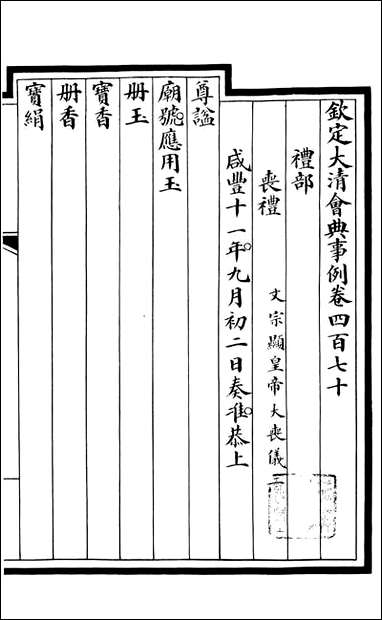 欽定大清會典事例卷四百七十
禮部
喪禮
文宗顯皇帝大喪儀二
咸豐十一年九月初二日奏准恭上
尊諡
廟號應用玉
冊玉
寶香
冊香
寶絹